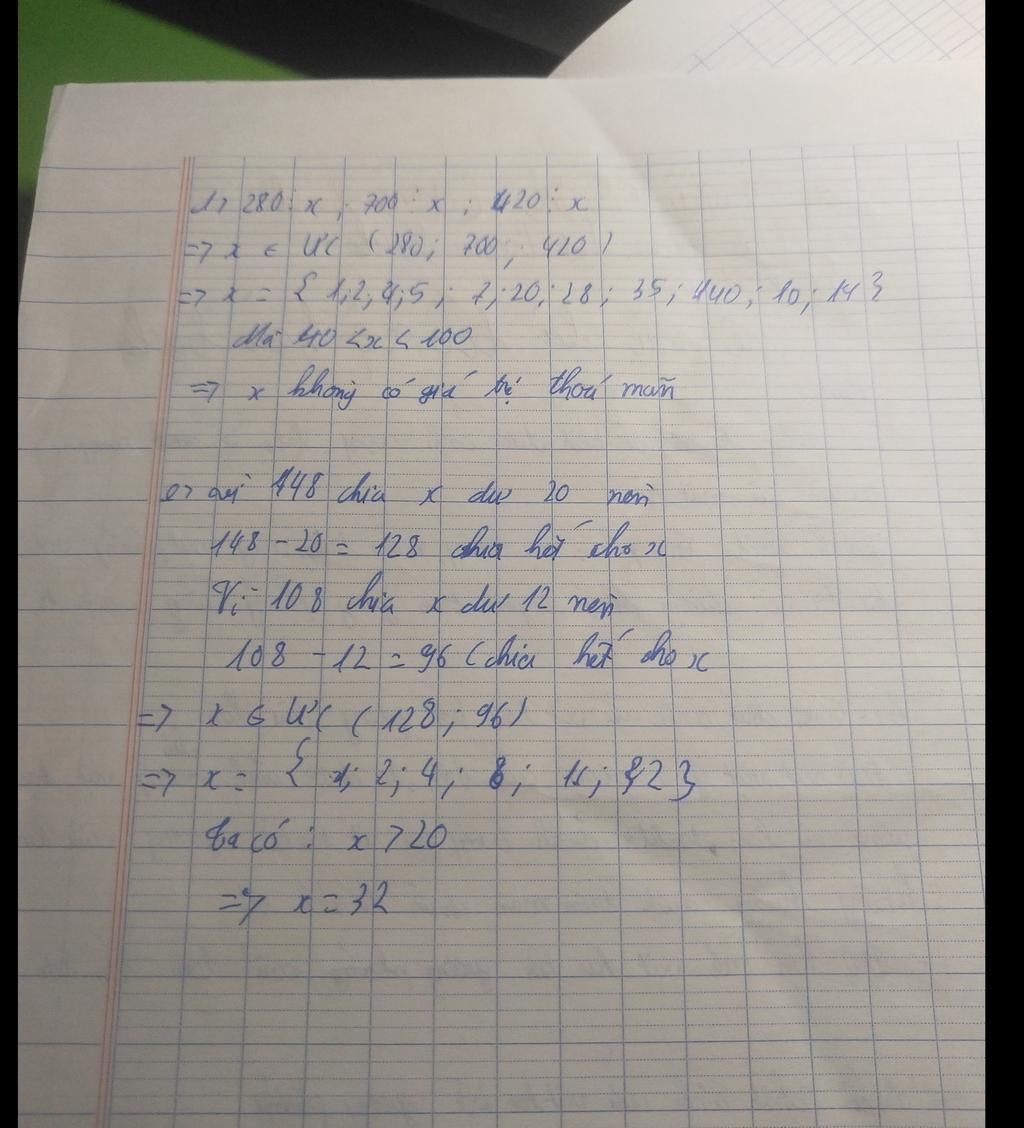 1> 280 ⋮ x ; 700 ⋮ x ; 420 ⋮ x
=> x ∈ ƯC (280; 700; 420)
=> x = { 1; 2; 4; 5; 7; 20; 28; 35; 140; 10; 14 }
Mà 40 < x < 100
=> x không có giá trị thoả mãn
e> vì 148 chia x dư 20 nên
148 - 20 = 128 chia hết cho x
Vì 108 chia x dư 12 nên
108 - 12 = 96 (chia hết cho x
=> x ∈ ƯC (128; 96)
=> x = { 1; 2; 4; 8; 16; 32 }
ta có : x > 20
=> x = 32